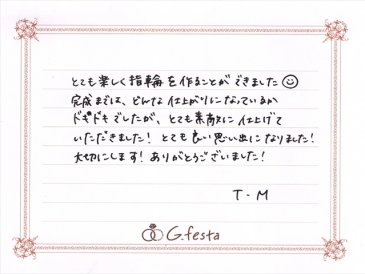 とても楽しく指輪を作ることができました☺
完成までは、どんな仕上がりになっているか
ドキドキでしたが、とても素敵に仕上げて
いただきました！とても良い思い出になりました！
大切にします！ありがとうございました！
T・M
G.festa